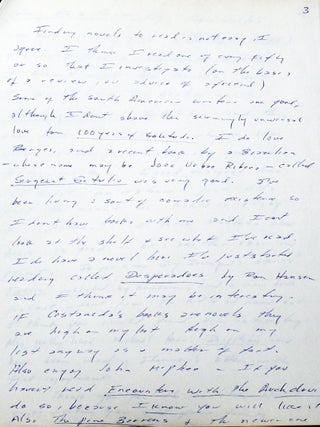 3
Finding novels to read is not easy, I
agree. I think I read one of every fifty
or so that I investigate (on the basis
of a review, or advice of a friend)
Some of the South American writers are good,
although I don't share the seemingly universal
love for 100 years of Solitude. I do love
Borges, and a recent book by a Brazilian
– whose name may be João Ubaldo Ribeiro – called
Sergeant Getulio was very good. I've
been living a sort of nomadic existence so
I don't have books with me and I can't
look at the shelf & see what I've read.
I do have a novel here I've just started
reading called Desperadoes by Ron Hansen
and I think it may be interesting.
If Castaneda's books are novels they
are high on my list. High on my
list anyway as a matter of fact.
Also enjoy John McPhee – If you
haven't read Encounters with the Archdruid
do so, because I know you will like it
Also The Pine Barrens & the newer one